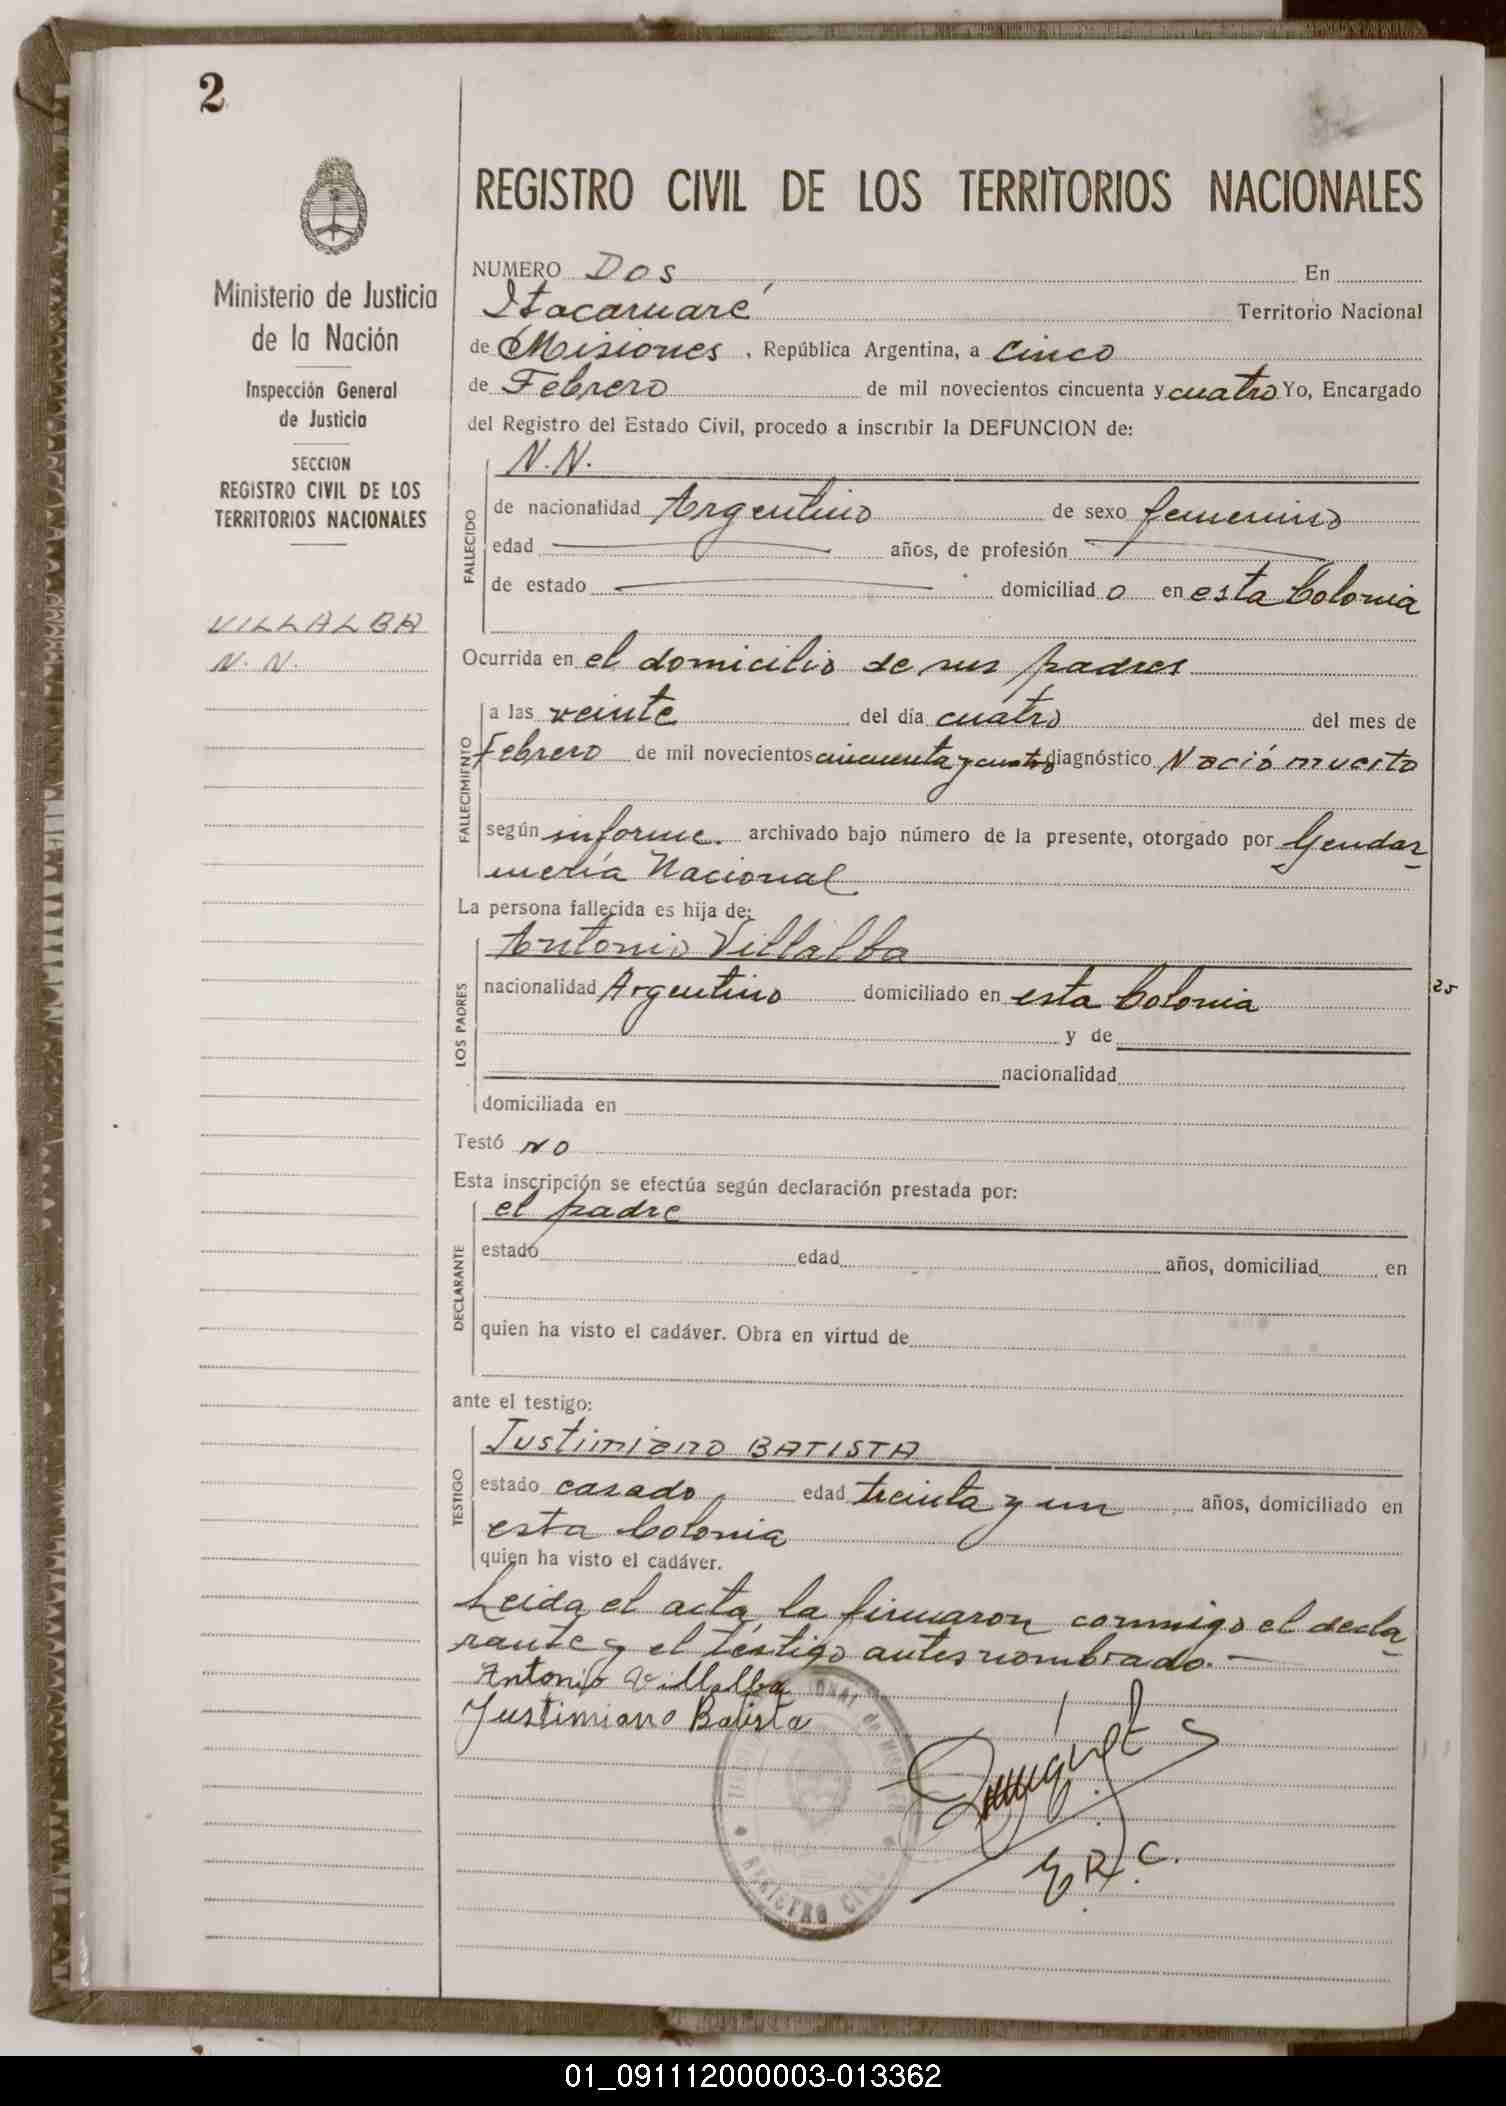 2
Ministerio de Justicia
de la Nación
Inspección General
de Justicia
SECCION
REGISTRO CIVIL DE LOS
TERRITORIOS NACIONALES
VILLALBA
N. N.
REGISTRO CIVIL DE LOS TERRITORIOS NACIONALES
NUMERO Dos En
Itacaruaré Territorio Nacional
de Misiones, República Argentina, a cinco
de Febrero de mil novecientos cincuenta y cuatro Yo, Encargado
del Registro del Estado Civil, procedo a inscribir la DEFUNCION de:
FALLECIDO
N.N.
de nacionalidad Argentino de sexo femenino
edad años, de profesión
de estado domiciliad o en esta Colonia
Ocurrida en el domicilio de sus padres
FALLECIMIENTO
a las veinte del día cuatro del mes de
Febrero de mil novecientos cincuenta y cuatro diagnóstico Nació muerto
según informe. archivado bajo número de la presente, otorgado por Gendar-
mería Nacional
La persona fallecida es hija de:
LOS PADRES
Antonio Villalba
nacionalidad Argentino domiciliado en esta Colonia
25
y de
nacionalidad
domiciliada en
Testó NO
Esta inscripción se efectúa según declaración prestada por:
DECLARANTE
el padre
estado edad años, domiciliad en
quien ha visto el cadáver. Obra en virtud de
ante el testigo:
TESTIGO
Justimiano BATISTA
estado casado, edad treinta y un años, domiciliado en
esta Colonia
quien ha visto el cadáver.
Leida el acta, la firmaron conmigo el decla-
rante y el téstigo antes nombrado.-
Antonio Villalba
Justimiano Batista
E.R.C.
REGISTRO CIVIL
01_091112000003-013362